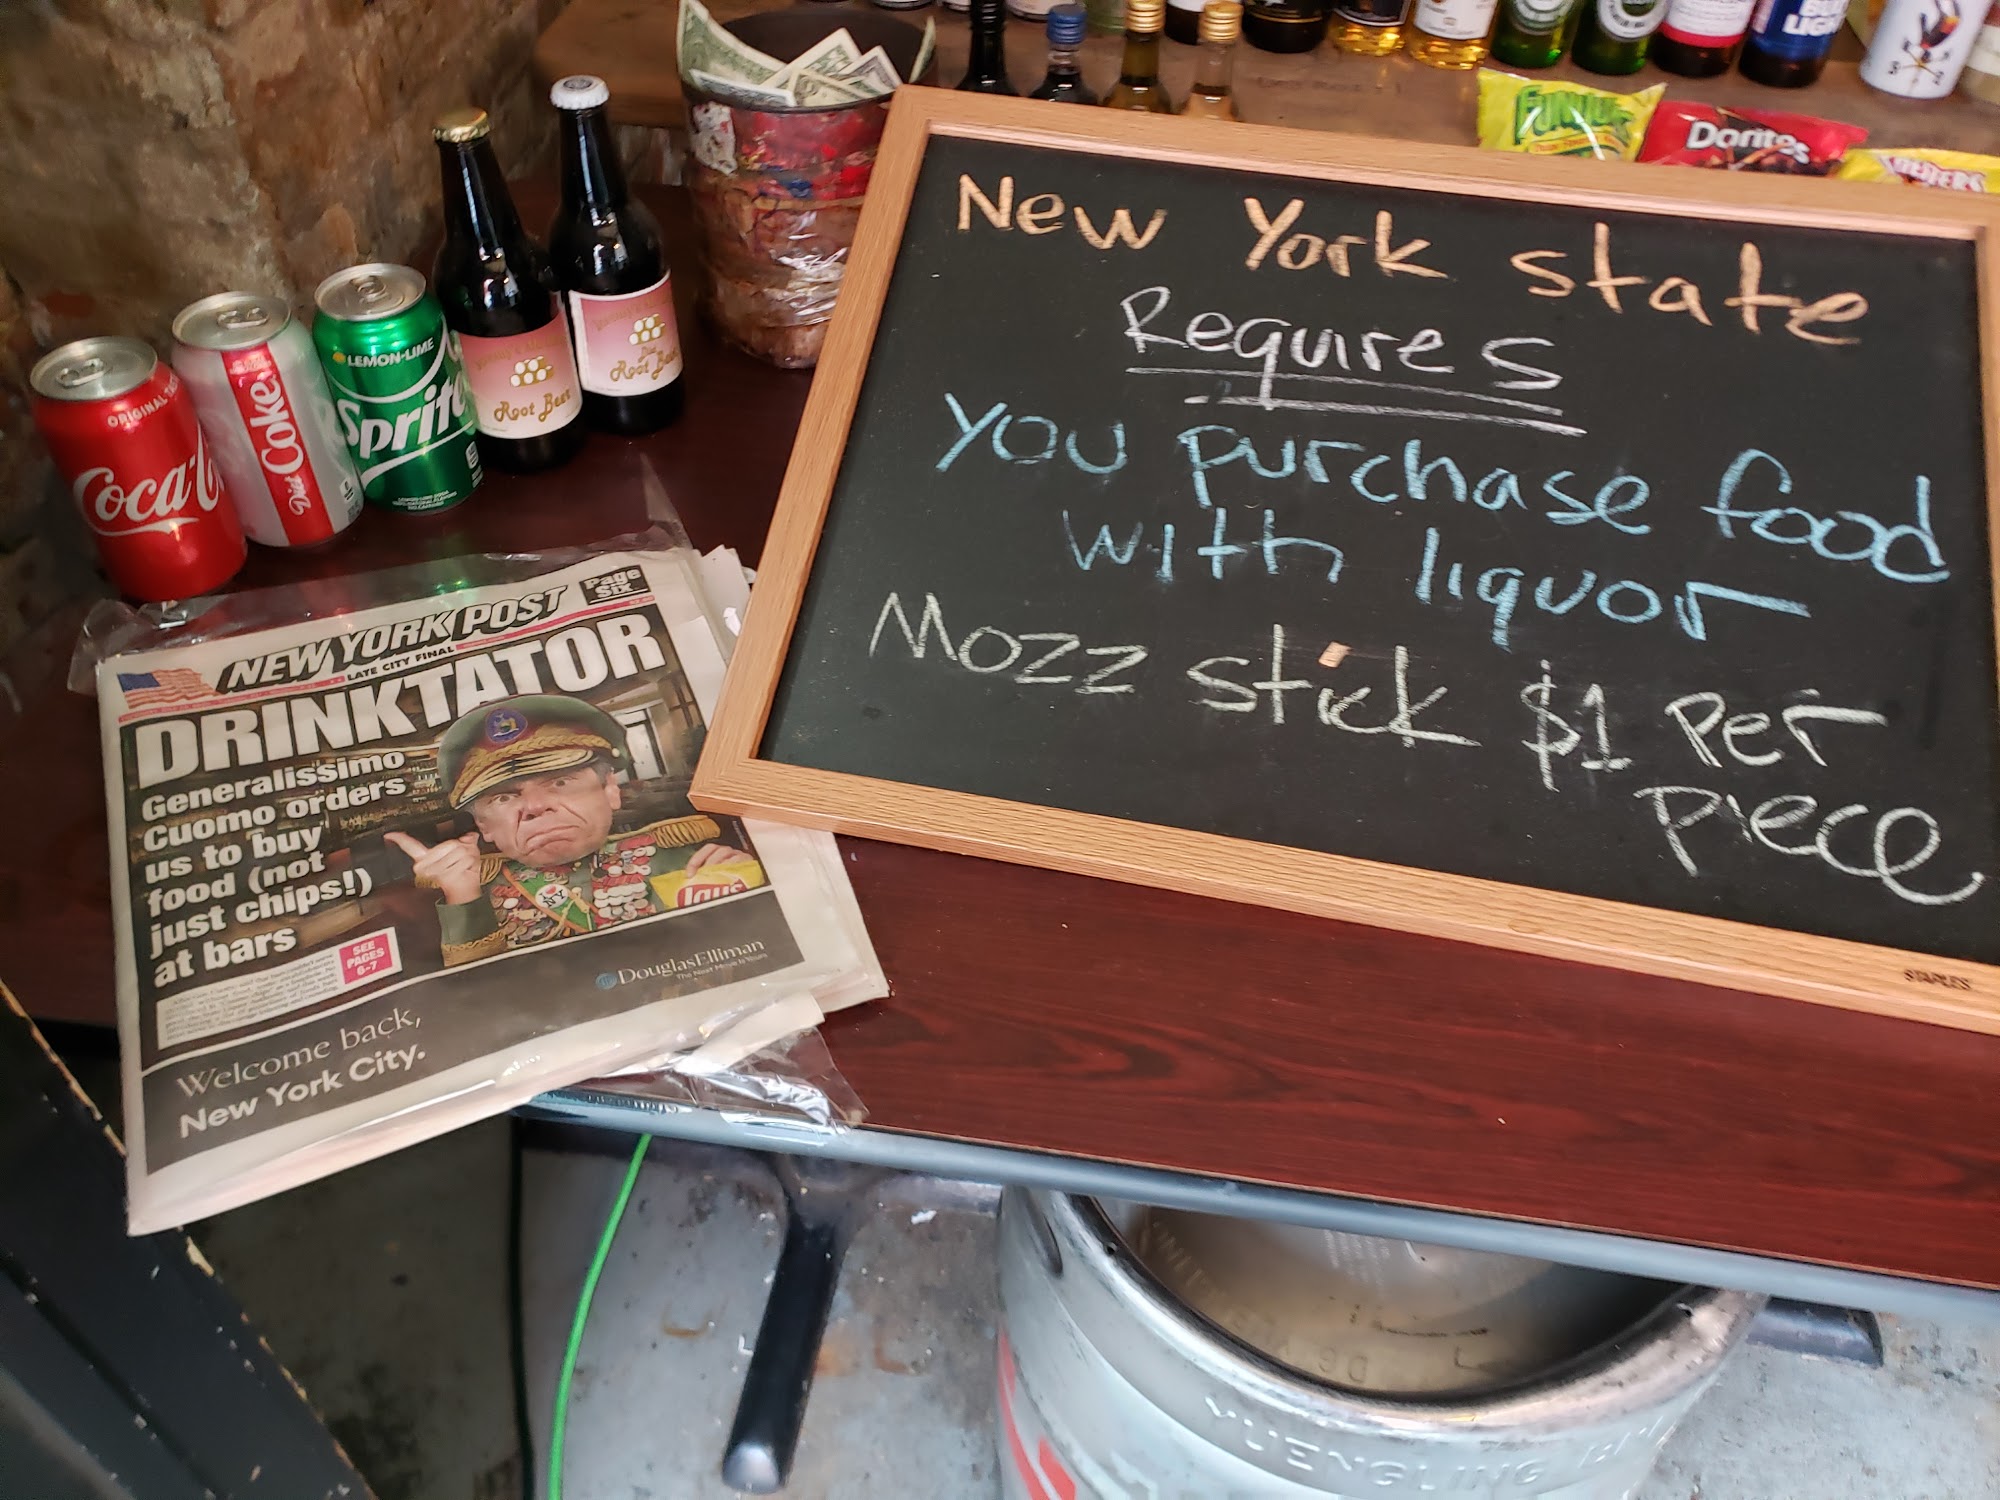 New York State
Requires
You purchase food
with liquor
Mozz Stick $1 Per
piece
STAPLES
NEW YORK POST
Page
Six
LATE CITY FINAL
DRINKTATOR
Generalissimo
Cuomo orders
us to buy
food (not
just chips!)
at bars
SEE
PAGES
6-7
I ❤ NY
Lays
DouglasElliman
The Next Move Is Yours
Welcome back,
New York City.
ORIGINAL
Coca-
Diet Coke
LEMON-LIME
Sprite
Root Beer
Diet
Root Beer
FUNYUNS
Doritos
BUD
LIGHT
YUENGLING